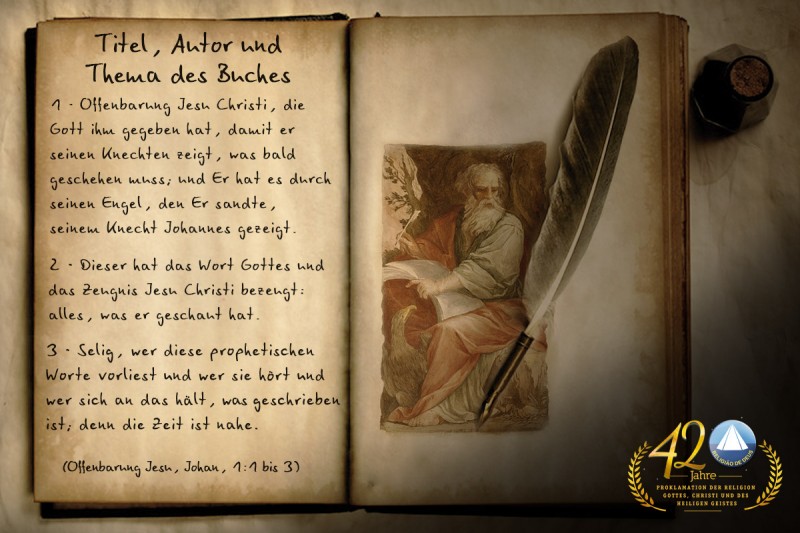 Titel, Autor und
Thema des Buches
1 - Offenbarung Jesu Christi, die
Gott ihm gegeben hat, damit er
seinen Knechten zeigt, was bald
geschehen muss; und Er hat es durch
seinen Engel, den Er sandte,
seinem Knecht Johannes gezeigt.
2 - Dieser hat das Wort Gottes und
das Zeugnis Jesu Christi bezeugt:
alles, was er geschaut hat.
3 - Selig, wer diese prophetischen
Worte vorliest und wer sie hört und
wer sich an das hält, was geschrieben
ist; denn die Zeit ist nahe.
(Offenbarung Jesu, Johan, 1:1 bis 3)
42
Jahre
RELIGIÃO DE DEUS
PROKLAMATION DER RELIGION
GOTTES, CHRISTI UND DES
HEILIGEN GEISTES